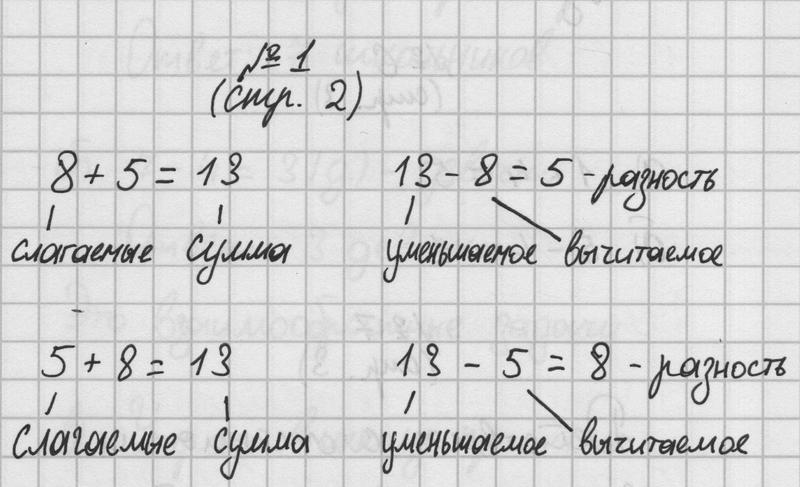 № 1
(стр. 2)
8 + 5 = 13 13 - 8 = 5 - разность
слагаемые сумма уменьшаемое вычитаемое
5 + 8 = 13 13 - 5 = 8 - разность
слагаемые сумма уменьшаемое вычитаемое